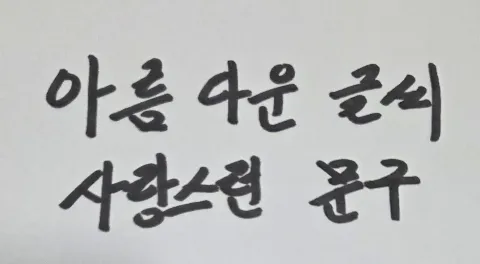 아름다운 글씨
사랑스런 문구